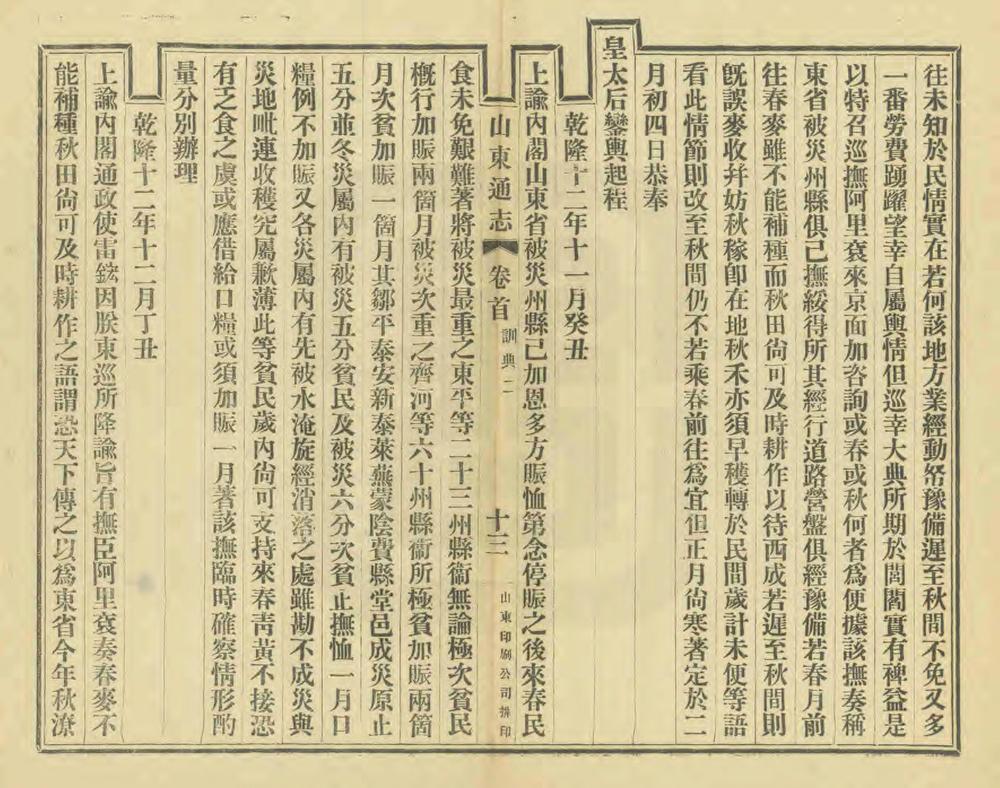 往未知於民情實在若何該地方業經動帑豫備遲至秋間不免又多
一番勞費踴躍望幸自屬輿情但巡幸大典所期於閭閻實有裨益是
以特召巡撫阿里袞來京面加咨詢或春或秋何者為便據該撫奏稱
東省被災州縣俱已撫綏得所其經行道路營盤俱經豫備若春月前
往春麥雖不能補種而秋田尙可及時耕作以待西成若遲至秋間則
旣誤麥收幷妨秋稼卽在地秋禾亦須早穫轉於民間歲計未便等語
看此情節則改至秋間仍不若乘春前往爲宜但正月尙寒著定於二
月初四日恭奉
皇太后鑾輿起程
乾隆十二年十一月癸丑
上諭內閣山東省被災州縣已加恩多方賑恤第念停賑之後來春民
山東通志 卷首 訓典二 十三 山東印刷公司排印
食未免艱難著將被災最重之東平等二十三州縣衞無論極次貧民
槪行加賑兩箇月被災次重之齊河等六十州縣衞所極貧加賑兩箇
月次貧加賑一箇月其鄒平泰安新泰萊蕪蒙陰費縣堂邑成災原止
五分並冬災屬內有被災五分貧民及被災六分次貧止撫恤一月口
糧例不加賑又各災屬內有先被水淹旋經消落之處雖勘不成災與
災地毗連收穫究屬歉薄此等貧民歲內尙可支持來春靑黃不接恐
有乏食之虞或應借給口糧或須加賑一月著該撫臨時確察情形酌
量分別辦理
乾隆十二年十二月丁丑
上諭內閣通政使雷鋐因朕東巡所降諭旨有撫臣阿里袞奏春麥不
能補種秋田尙可及時耕作之語謂恐天下傳之以爲東省今年秋潦